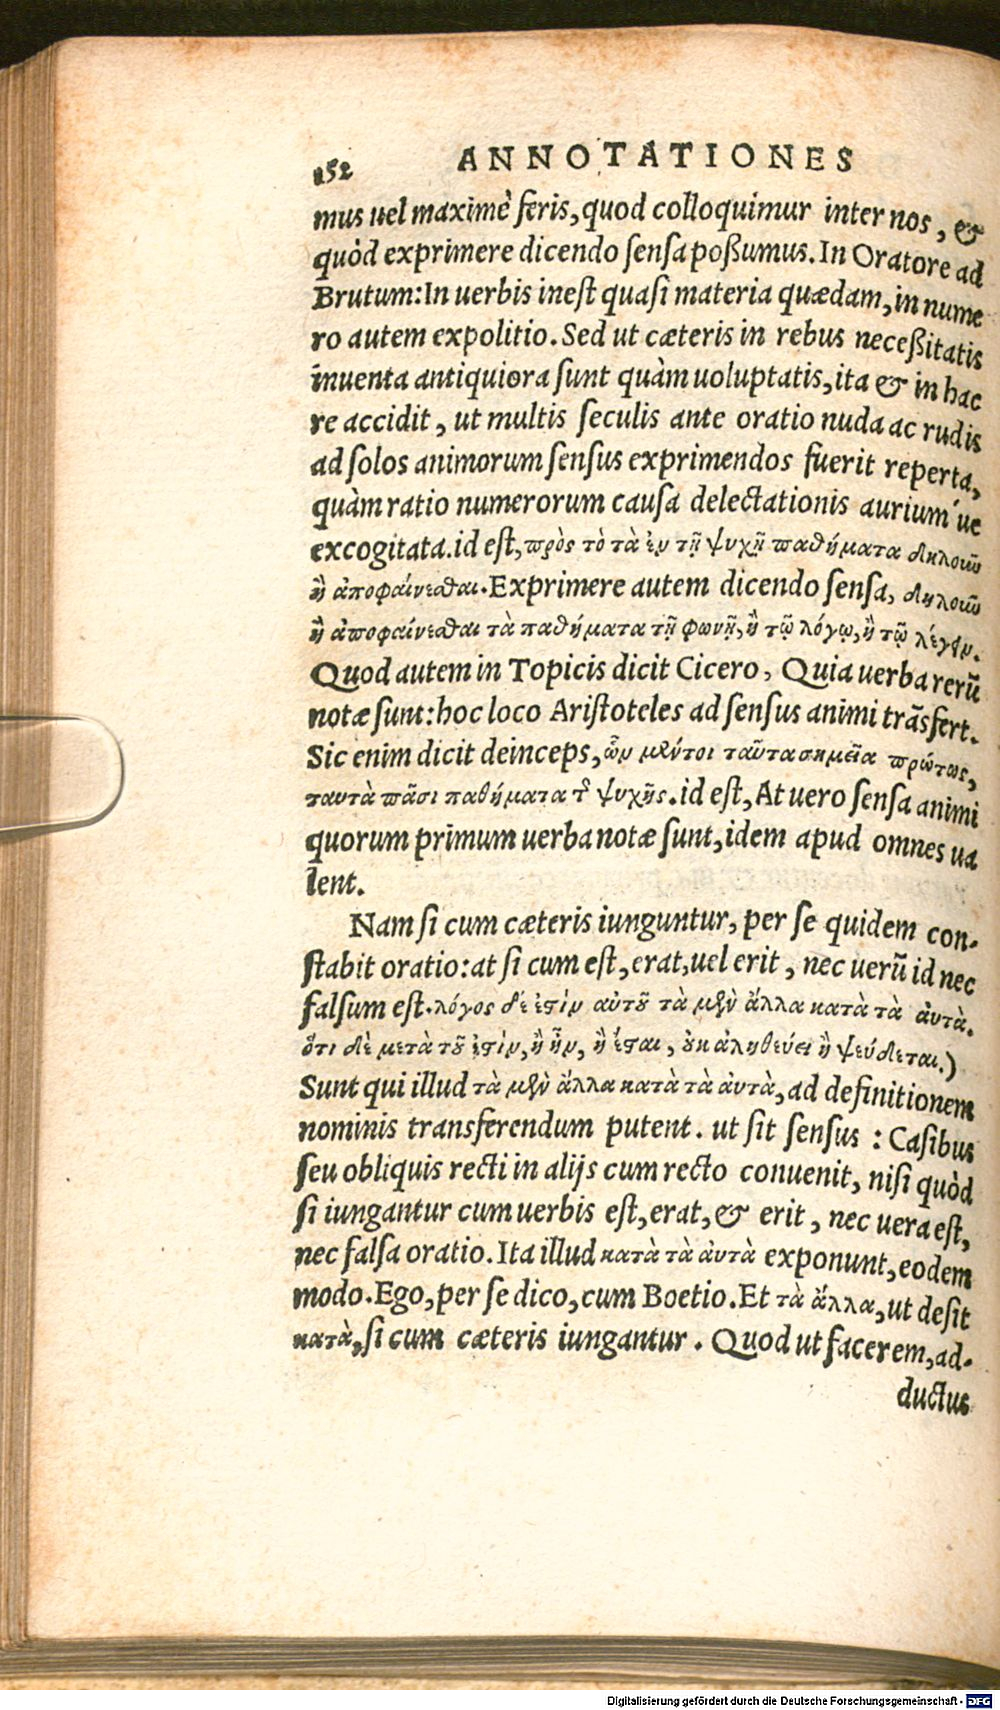 152 ANNOTATIONES
mus uel maximè feris, quod colloquimur inter nos, &
quòd exprimere dicendo sensa poßumus. In Oratore ad
Brutum: In uerbis inest quasi materia quædam, in nume
ro autem expolitio. Sed ut cæteris in rebus neceßitatis
inuenta antiquiora sunt quàm uoluptatis, ita & in hac
re accidit, ut multis seculis ante oratio nuda ac rudis
ad solos animorum sensus exprimendos fuerit reperta,
quàm ratio numerorum causa delectationis aurium ue
excogitata. id est, πρὸς τὸ τὰ ἐν τῇ ψυχῇ παθήματα δηλοιῶ
ἢ ἀποφαίνεσθαι. Exprimere autem dicendo sensa, δηλοιῶ
ἢ ἀποφαίνεσθαι τὰ παθήματα τῇ φωνῇ, ἢ τῷ λόγῳ, ἢ τῷ λέγειν.
Quod autem in Topicis dicit Cicero, Quia uerba rerũ
notæ sunt: hoc loco Aristoteles ad sensus animi trãsfert.
Sic enim dicit deinceps, ὧν μέντοι ταῦτα σημεῖα πρώτως,
ταυτὰ πᾶσι παθήματα τ͂ ψυχῆς. id est, At uero sensa animi
quorum primum uerba notæ sunt, idem apud omnes ua
lent.
Nam si cum cæteris iunguntur, per se quidem con-
stabit oratio: at si cum est, erat, uel erit, nec uerũ id nec
falsum est. λόγος δέ ἐστὶν αὐτοῦ τὰ μὲν ἄλλα κατὰ τὰ ἀυτὰ.
ὅτι δὲ μετὰ τοῦ ἐστὶν, ἢ ἦν, ἢ ἔσται, οὐκ ἀληθεύει ἢ ψεύδεται.)
Sunt qui illud τὰ μὲν ἄλλα κατὰ τὰ ἀυτὰ, ad definitionem
nominis transferendum putent. ut sit sensus: Casibus
seu obliquis recti in alijs cum recto conuenit, nisi quòd
si iungantur cum uerbis est, erat, & erit, nec uera est,
nec falsa oratio. Ita illud κατὰ τὰ ἀυτὰ exponunt, eodem
modo. Ego, per se dico, cum Boetio. Et τὰ ἄλλα, ut desit
κατὰ, si cum cæteris iungantur. Quod ut facerem, ad-
ductus
Digitalisierung gefördert durch die Deutsche Forschungsgemeinschaft - DFG